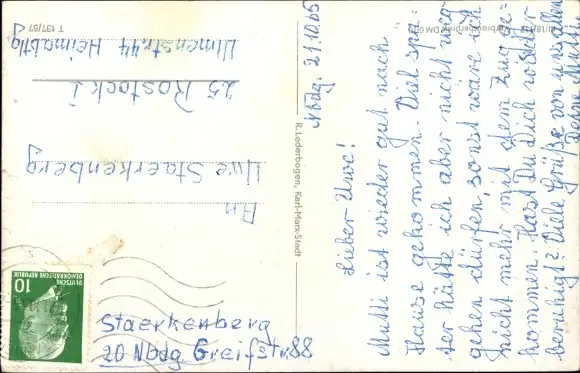 Nbdg. 21.10.65
Lieber Uwe!
Mutti ist wieder gut nach
Hause gekommen. Viel spä-
ter hätte ich aber nicht weg
gehen dürfen, sonst wäre ich
nicht mehr mit dem Zug ge-
kommen. Hast Du Dich wieder
beruhigt? Viele Grüße von uns allen
Deine Mutti
R. Lederbogen, Karl-Marx-Stadt
T 137/57
An
Uwe Staerkenberg
25 Rostock 1
Ulmenstr. 44 Heimabtlg
DEUTSCHE
DEMOKRATISCHE REPUBLIK
10
Staerkenberg
20 Nbdg Greifstr. 88